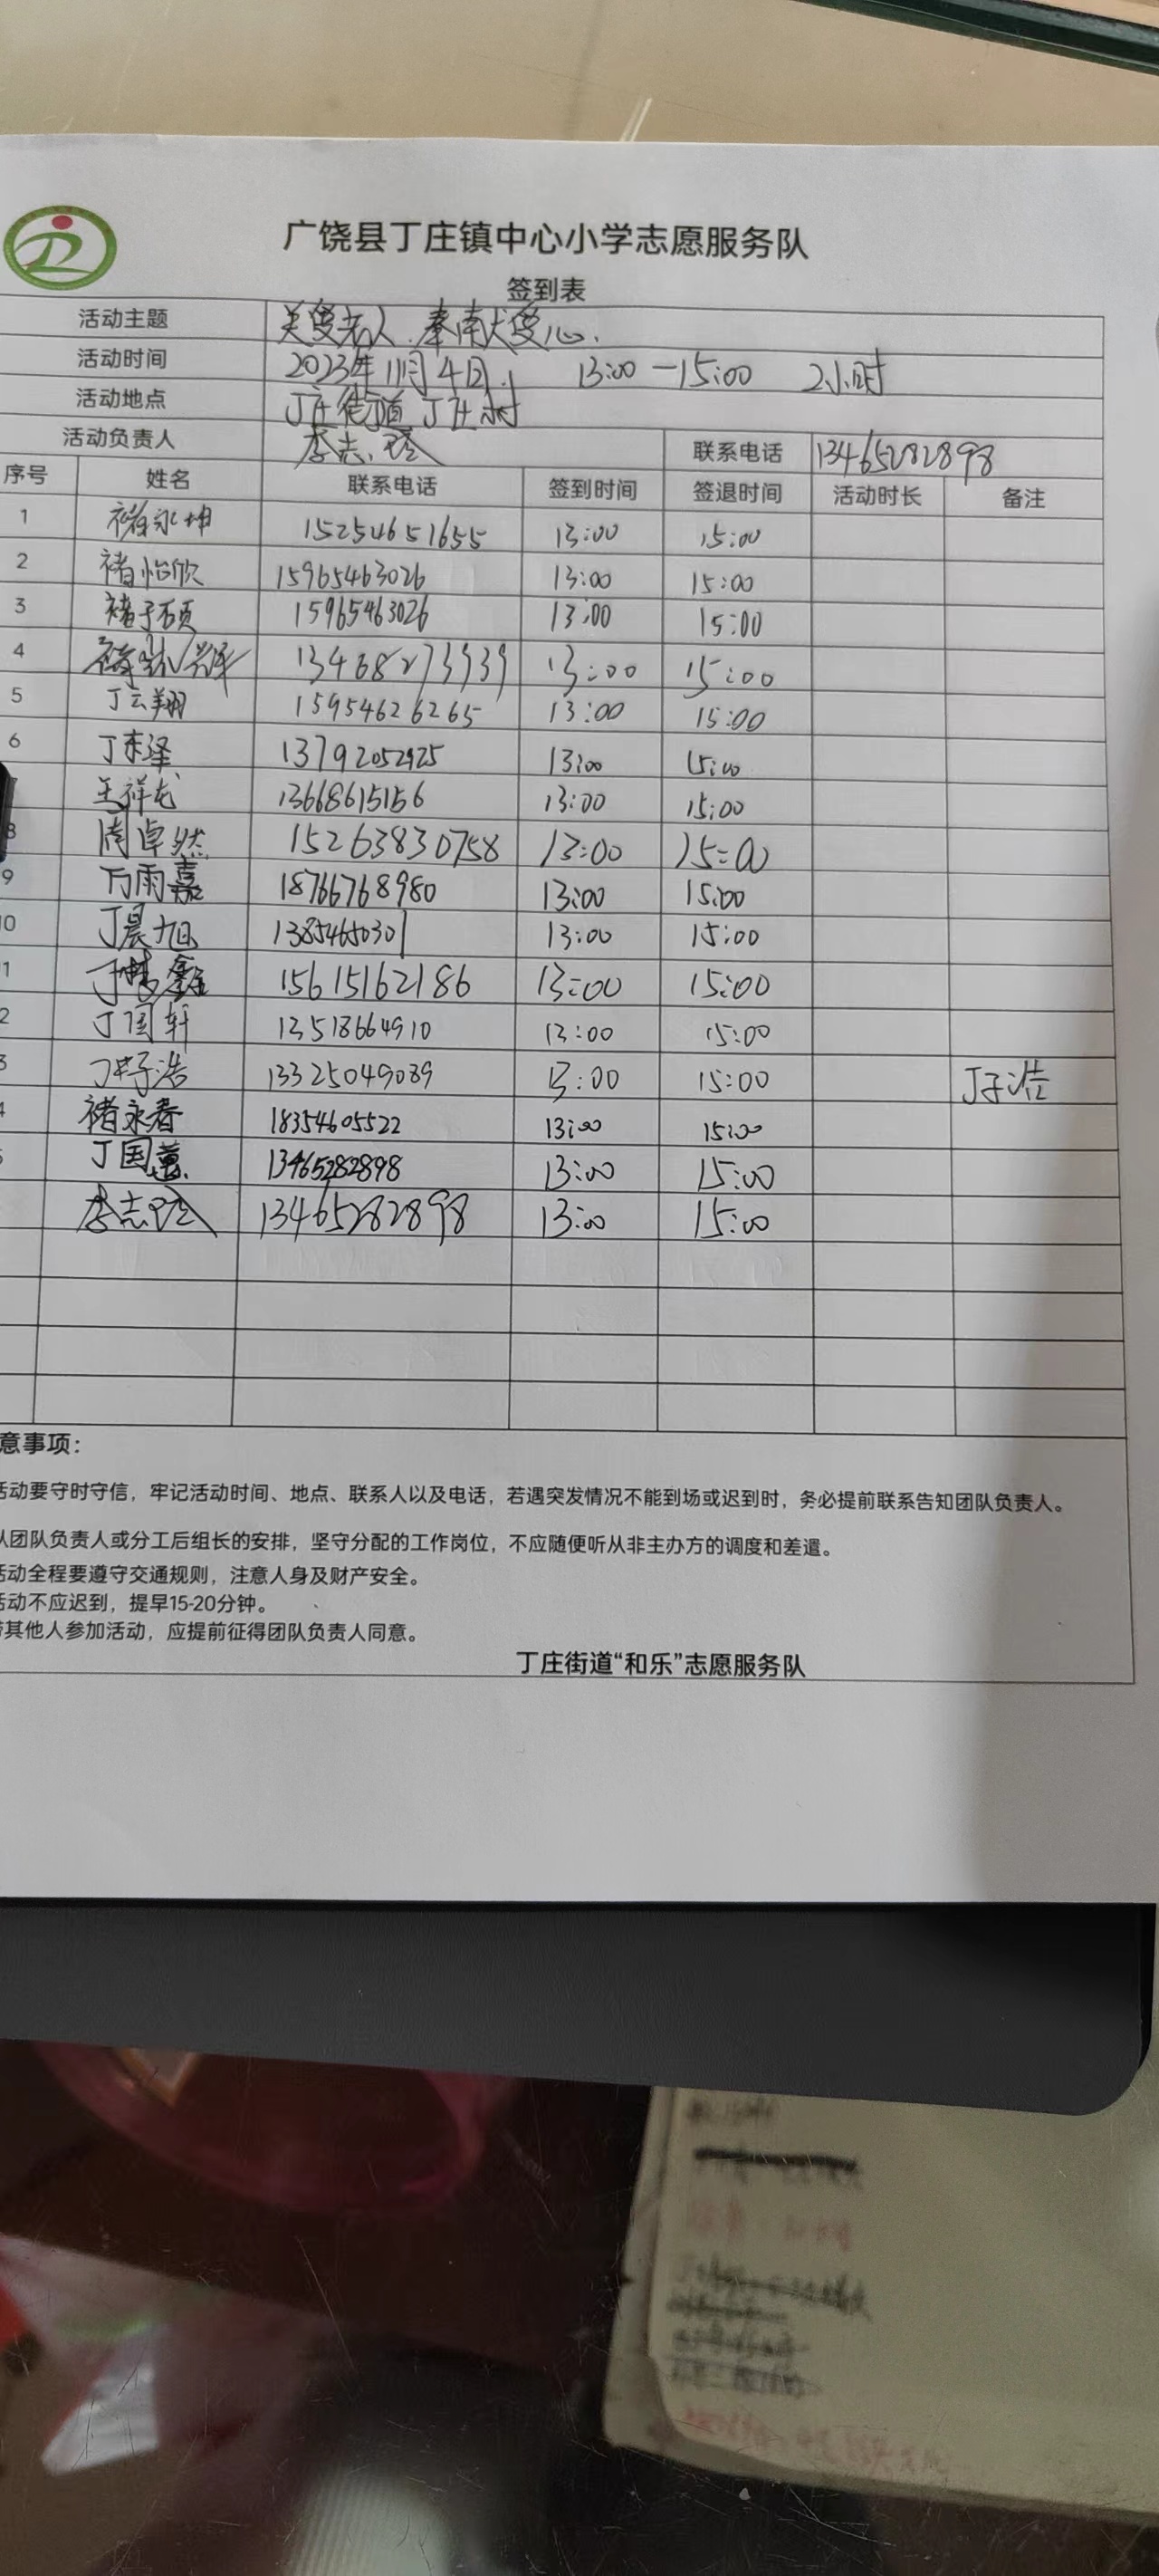 广饶县丁庄镇中心小学志愿服务队
签到表
活动主题 关爱老人.奉献爱心.
活动时间 2023年11月4日. 13:00—15:00 2小时
活动地点 丁庄街道丁庄村
活动负责人 李志玲 联系电话 13465282898
序号 姓名 联系电话 签到时间 签退时间 活动时长 备注
1 褚永坤 15254651655 13:00 15:00
2 褚怡欣 15965463026 13:00 15:00
3 褚子硕 15965463026 13:00 15:00
4 13468273939 13:00 15:00
5 丁云翔 15954626265 13:00 15:00
6 丁东泽 13792052925 13:00 15:00
王祥龙 13668615156 13:00 15:00
8 周卓然 15263830758 13:00 15:00
9 万雨嘉 18766768980 13:00 15:00
10 丁晨旭 13854650301 13:00 15:00
1 丁梦鑫 15615162186 13:00 15:00
2 丁国轩 13518664910 13:00 15:00
3 丁子浩 13325049089 13:00 15:00 丁子浩
4 褚永春 18354605522 13:00 15:00
5 丁国蕙 13465282898 13:00 15:00
李志玲 13465282898 13:00 15:00
意事项:
活动要守时守信，牢记活动时间、地点、联系人以及电话，若遇突发情况不能到场或迟到时，务必提前联系告知团队负责人。
从团队负责人或分工后组长的安排，坚守分配的工作岗位，不应随便听从非主办方的调度和差遣。
活动全程要遵守交通规则，注意人身及财产安全。
活动不应迟到，提早15-20分钟。
带其他人参加活动，应提前征得团队负责人同意。
丁庄街道“和乐”志愿服务队